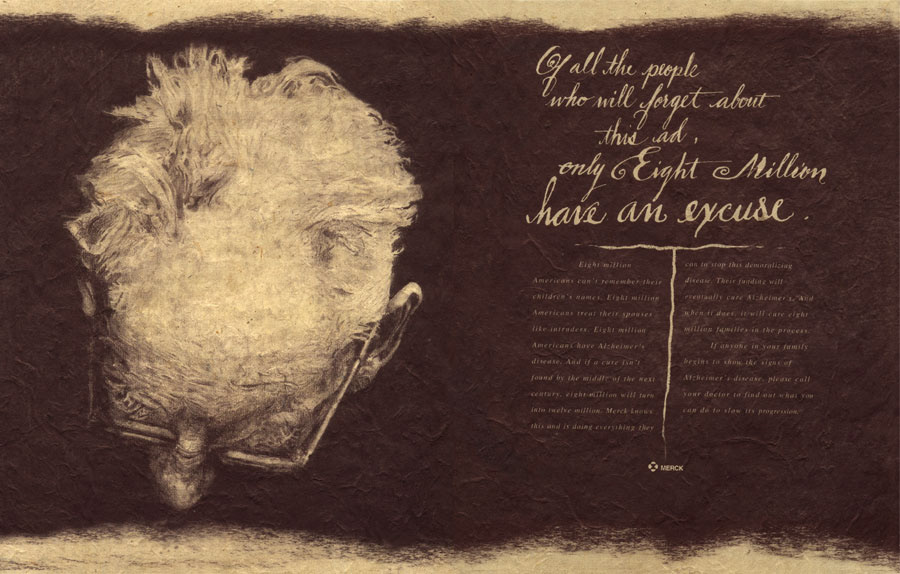 Of all the people
who will forget about
this ad,
only Eight Million
have an excuse.
Eight million
Americans can't remember their
children's names. Eight million
Americans treat their spouses
like intruders. Eight million
Americans have Alzheimer's
disease. And if a cure isn't
found by the middle of the next
century, eight million will turn
into twelve million. Merck knows
this and is doing everything they
can to stop this demoralizing
disease. Their funding will
eventually cure Alzheimer's. And
when it does, it will cure eight
million families in the process.
If anyone in your family
begins to show the signs of
Alzheimer's disease, please call
your doctor to find out what you
can do to slow its progression.
MERCK